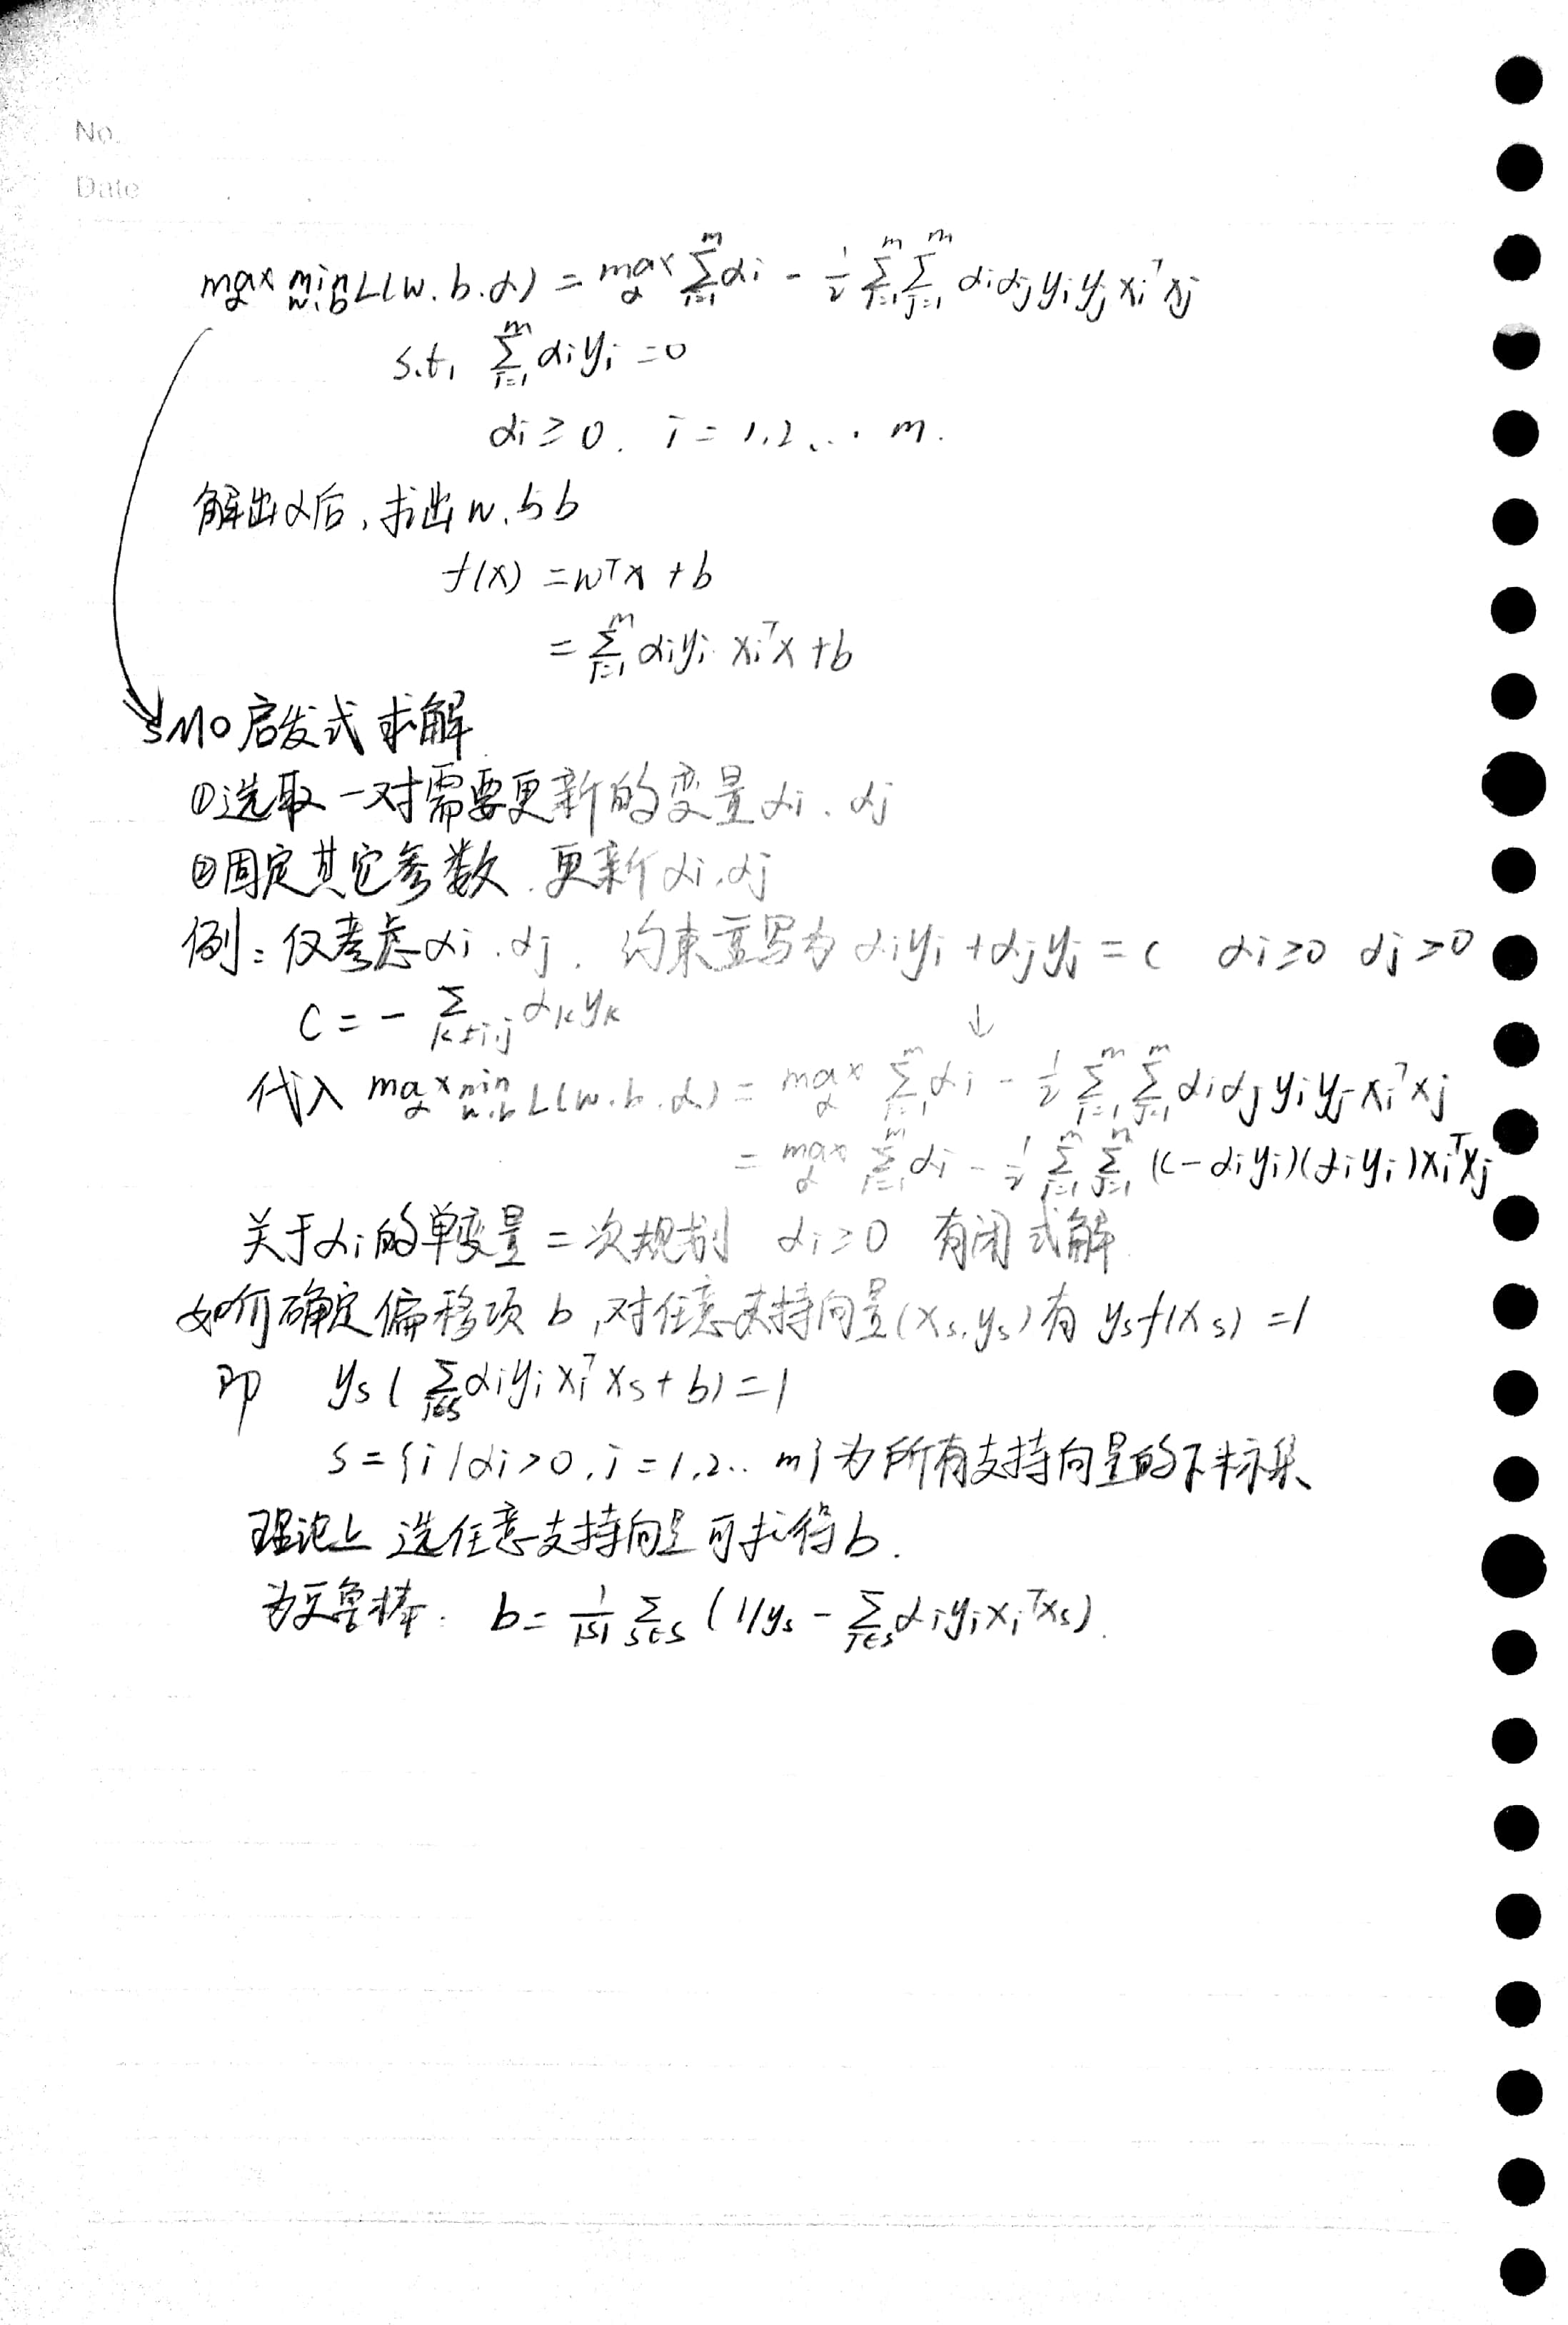 No.
Date
max_α min_{w.b} L(w.b.α) = max_α ∑_{i=1}^m αi - 1/2 ∑_{i=1}^m ∑_{j=1}^m αiαjyiyjxi^Txj
s.t. ∑_{i=1}^m αiyi = 0
αi ≥ 0. i = 1.2... m.
解出α后,求出w.与b
f(x) = w^Tx + b
= ∑_{i=1}^m αiyi xi^Tx + b
SMO启发式求解
①选取一对需要更新的变量αi.αj
②固定其它参数.更新αi.αj
例:仅考虑αi.αj. 约束重写为αiyi + αjyj = c αi≥0 αj≥0
C = - ∑_{k≠i.j} αkyk ↓
代入 max_α min_{w.b} L(w.b.α) = max_α ∑_{i=1}^m αi - 1/2 ∑_{i=1}^m ∑_{j=1}^m αiαjyiyjxi^Txj
= max_α ∑_{i=1}^m αi - 1/2 ∑_{i=1}^m ∑_{j=1}^m (c-αiyi)(αiyi)xi^Txj
关于αi的单变量二次规划 αi≥0 有闭式解
如何确定偏移项b,对任意支持向量(xs.ys)有 ysf(xs) = 1
即 ys(∑_{i∈s} αiyixi^Txs + b) = 1
s = {i/αi>0.i=1.2.. m}为所有支持向量的下标集
理论上 选任意支持向量可求得b.
为更鲁棒: b = 1/|s| ∑_{s∈s} (1/ys - ∑_{i∈s} αiyixi^Txs).